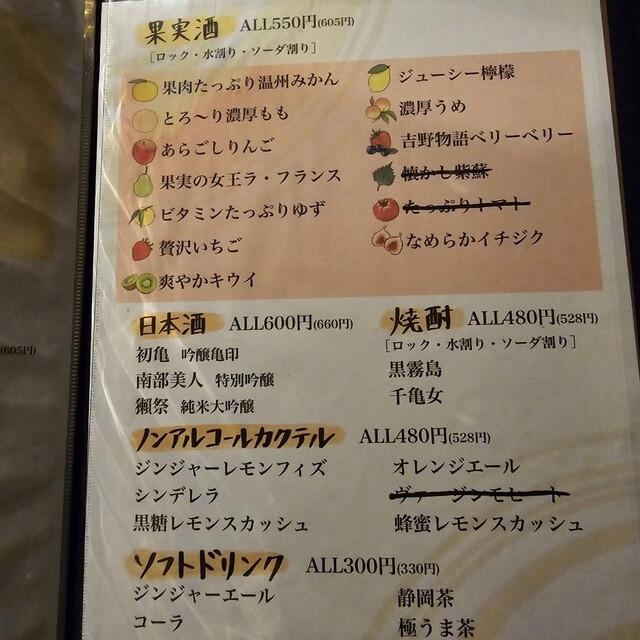 果実酒 ALL550円(605円)
［ロック・水割り・ソーダ割り］
果肉たっぷり温州みかん
とろ〜り濃厚もも
あらごしりんご
果実の女王ラ・フランス
ビタミンたっぷりゆず
贅沢いちご
爽やかキウイ
ジューシー檸檬
濃厚うめ
吉野物語ベリーベリー
懐かし紫蘇
たっぷりトマト
なめらかイチジク
日本酒 ALL600円(660円)
初亀 吟醸亀印
南部美人 特別吟醸
獺祭 純米大吟醸
焼酎 ALL480円(528円)
［ロック・水割り・ソーダ割り］
黒霧島
千亀女
ノンアルコールカクテル ALL480円(528円)
ジンジャーレモンフィズ
シンデレラ
黒糖レモンスカッシュ
オレンジエール
ヴァージンモヒート
蜂蜜レモンスカッシュ
ソフトドリンク ALL300円(330円)
ジンジャーエール
コーラ
静岡茶
極うま茶
(605円)